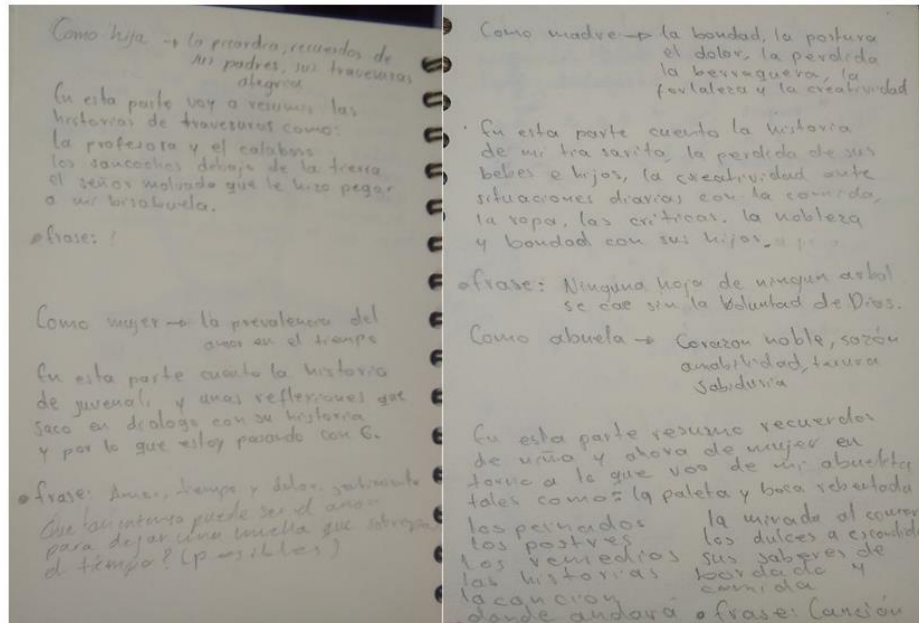 Como hija → la picardia, recuerdos de
sus padres, sus travesuras
alegria
En esta parte voy a resumir las
historias de travesuras como:
la profesora y el calaboso
los sancochos debajo de la tierra
el señor malvado que le hizo pegar
a mi bisabuela.
• frase: !
Como mujer → la prevalencia del
amor en el tiempo
En esta parte cuento la historia
de juvenal, y unas reflexiones que
saco en dialogo con su historia
y por lo que estoy pasando con G.
• frase: Amor, tiempo y dolor, sentimiento
Que tan intenso puede ser el amor
para dejar una huella que sobrepasa
el tiempo? (posibles)
Como madre → la bondad, la postura
el dolor, la perdida
la berraquera, la
fortaleza y la creatividad
• En esta parte cuento la historia
de mi tia sarita, la perdida de sus
bebes e hijos, la creatividad ante
situaciones diarias con la comida,
la ropa, las criticas. la nobleza
y bondad con sus hijos.
• frase: Ninguna hoja de ningun arbol
se cae sin la Boluntad de Dios.
Como abuela → Corazon noble, sazón
amabilidad, ternura
sabiduria
En esta parte resumo recuerdos
de niña y ahora de mujer en
torno a lo que veo de mi abuelita
tales como: la paleta y boca rebentada
los peinados la mirada al comer
los postres los dulces a escondidas
los remedios sus saberes de
las historias bordado y
la cancion comida
donde andará • frase: Canción